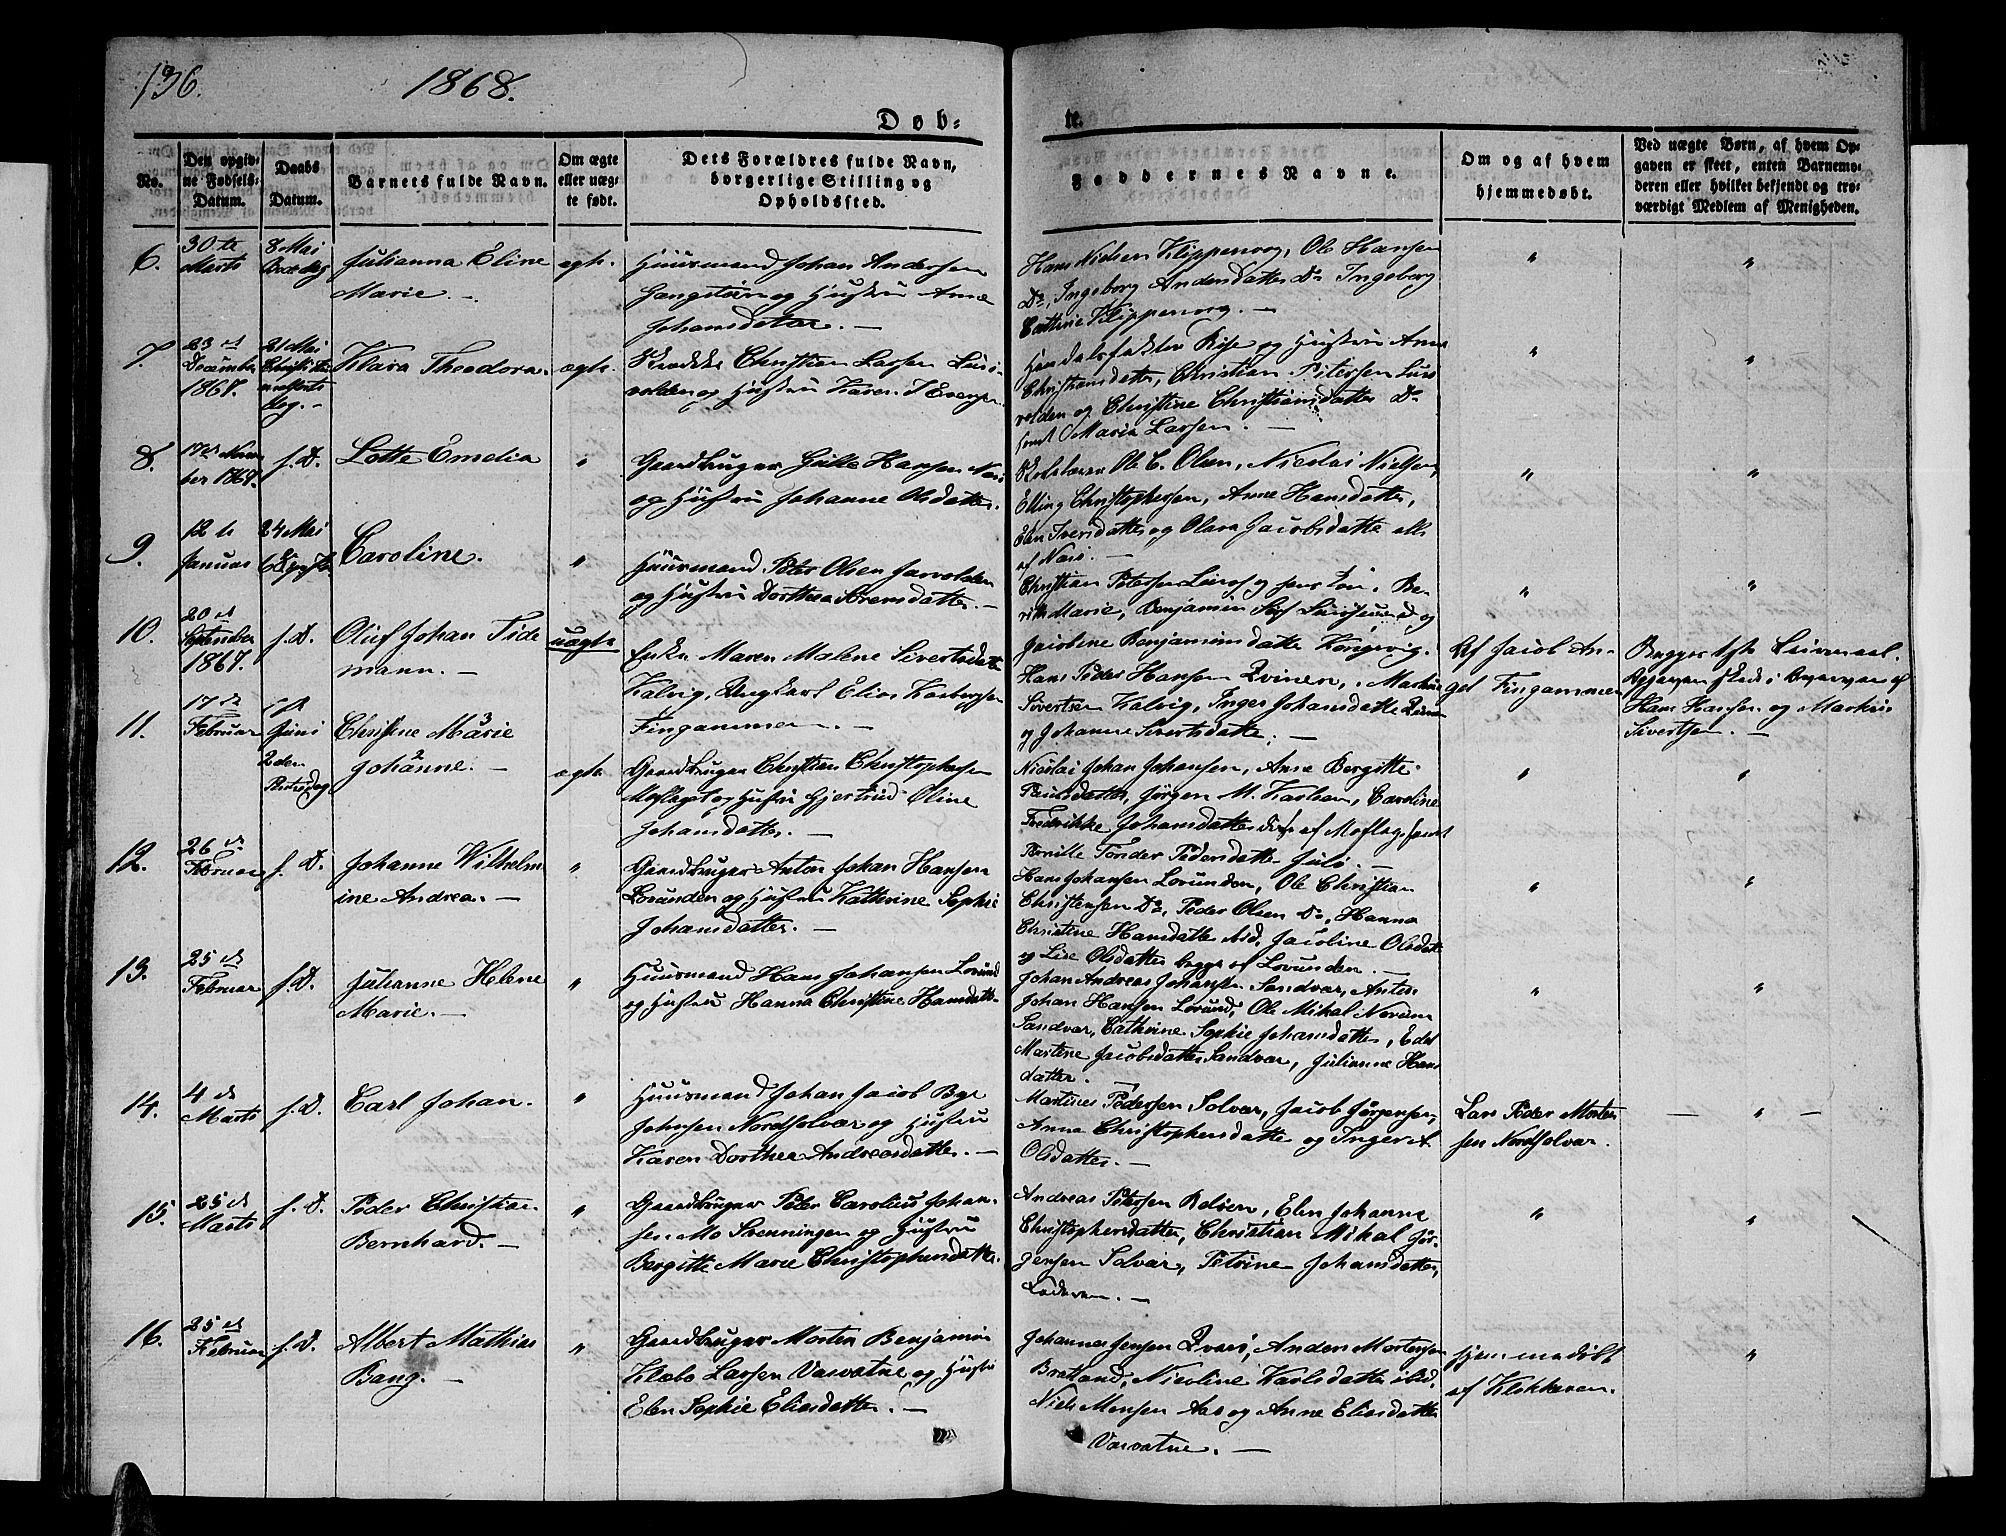 136.
1868.
Døb-
te.
No.
Den opgiv-
ne Fødsels-
Datum.
Daabs
Datum.
Barnets fulde Navn.
Om ægte
eller uæg-
te født.
Dets Forældres fulde Navn,
borgerlige Stilling og
Opholdssted.
Faddernes Navne.
Om og af hvem
hjemmedøbt.
Ved uægte Børn, af hvem Op-
gaven er skeet, enten Barnemo-
deren eller hvilket bekjendt og tro-
værdigt Medlem af Menigheden.
6.
30te
Marts
8 Mai
Julianna Eline
Marie. —
ægte.
Huusmand Johan Andersen
og Hustru Anne
Johansdatter. —
Hans Nielsen Klippenvog, Ole Hansen
Do, Ingeborg Andersdatter Do Ingeborg
Cathrine Klippenvog. —
"
"
7.
23d
December
1867.
21 Mai
Christi Him-
melfarts
dag. —
Klara Theodora.
ægte.
Christian Larsen Lurö-
volden og Hustru Karen
Handelsfuldm. Rise og Hustru Anne
Christiansdatter, Christian Petersen Lurö
volden og Christine Christiansdatter Do
samt Maria Larsen. —
"
"
8.
17de Novem
ber 1867.
s. D.
Lotte Emelia
"
Gaardbruger Hansen Næsö
og Hustru Johanne Olsdatter.
Skolelærer Ole C. Olsen, Nicolai Nielsen,
Elling Christophersen, Anne Hansdatter,
Elen Iversdatter og Olava Jacobsdatter alle
af Næsö. —
"
"
9.
12te
Januar
24 Mai
Caroline.
"
Huusmand Peter Olsen
og Hustru Dorthea Sörensdatter. —
Christian Petersen Luröe og hans Søn, Be-
rith Marie, Benjamin og
Jacobine Benjaminsdatter Kongsvig.
"
"
10.
20d
September
1867.
s. D.
Oluf Johan Tide
mann. —
uægte
Enke Maren Malene Sivertsdatter
Kalvig, Ungkarl Elias Karbergsen
Fingammen. —
Hans Peder Hansen Kvinen, Martinus
Sivertsen Kalvig, Inger Johansdatter Kvinen
og Johanne Sivertsdatter. —
Af Jacob An-
gel Fingammen
Hans Hansen og Martinus
Sivertsen. —
11.
17de
Februar
1ste
Juni
2den
Pintsedag
Christine Marie
Johanne. —
3
2
ægte
Gaardbruger Christian Christophersen
Moflaget og Hustru Gjertrud Oline
Johansdatter. —
Nicolai Johan Johansen, Anne Bergitte
Paulsdatter, Jørgen M. Karlsen, Caroline
Fredrikke Johansdatter disse af Moflaget samt
Pernille Tønder Pedersdatter Julö. —
"
"
12.
26de
Februar
s. D.
Johanne Wilhelm
ine Andrea. —
"
Gaardbruger Anton Johan Hansen
Lorunden og Hustru Kathrine Sophie
Johansdatter. —
Hans Johansen Lorunden, Ole Christian
Christensen Do, Peder Olsen Do, Hanna
Christine Hansdatter ibid, Jacobine Olsdatter
og Lise Olsdatter begge af Lorunden. —
"
"
13.
25d
Februar
s. D.
Julianne Helene
Marie. —
"
Huusmand Hans Johansen Lorund
og Hustru Hanna Christine Hansdatter.
Johan Andreas Johansen Sandvær, Anton
Johan Hansen Lorund, Ole Mikal Norum
Sandvær, Cathrine Sophie Johansdatter, Edel
Martene Jacobsdatter Sandvær, Julianne Hans
datter.
"
"
14.
4de
Marts
s. D.
Carl Johan.
"
Huusmand Johan Jacob Bye
Johnsen Nordsolvær og Hustru
Karen Dorthea Andreasdatter. —
Martines Pedersen Solvær, Jacob Jørgensen,
Anna Christophersdatter og Inger A.
Olsdatter. —
Lars Peder Morten
sen Nordsolvær.
— " —
15.
25d
Marts
s. D.
Peder Christian
Bernhard. —
"
Gaardbruger Peter Carolius Johan-
sen Mo Svenningen og Hustru
Bergitte Marie Christophersdatter.
Andreas Petersen Rølöen, Elen Johanne
Christophersdatter, Christian Mikal Jör-
gensen Solvær, Petrine Johansdatter,
"
"
16.
25de
Februar
s. D.
Albert Mathias
Bang. —
"
Gaardbruger Morten Benjamin
Klæbo Larsen Varvatne og Hustru
Elen Sophie Eliasdatter. —
Johannes Jensen Kvarö, Anders Mortensen
Bratland, Nicoline Karlsdatter ibid,
Niels Monsen Aas og Anne Eliasdatter
Varvatne. —
Hjemmedöbt
af Klokkeren.
"